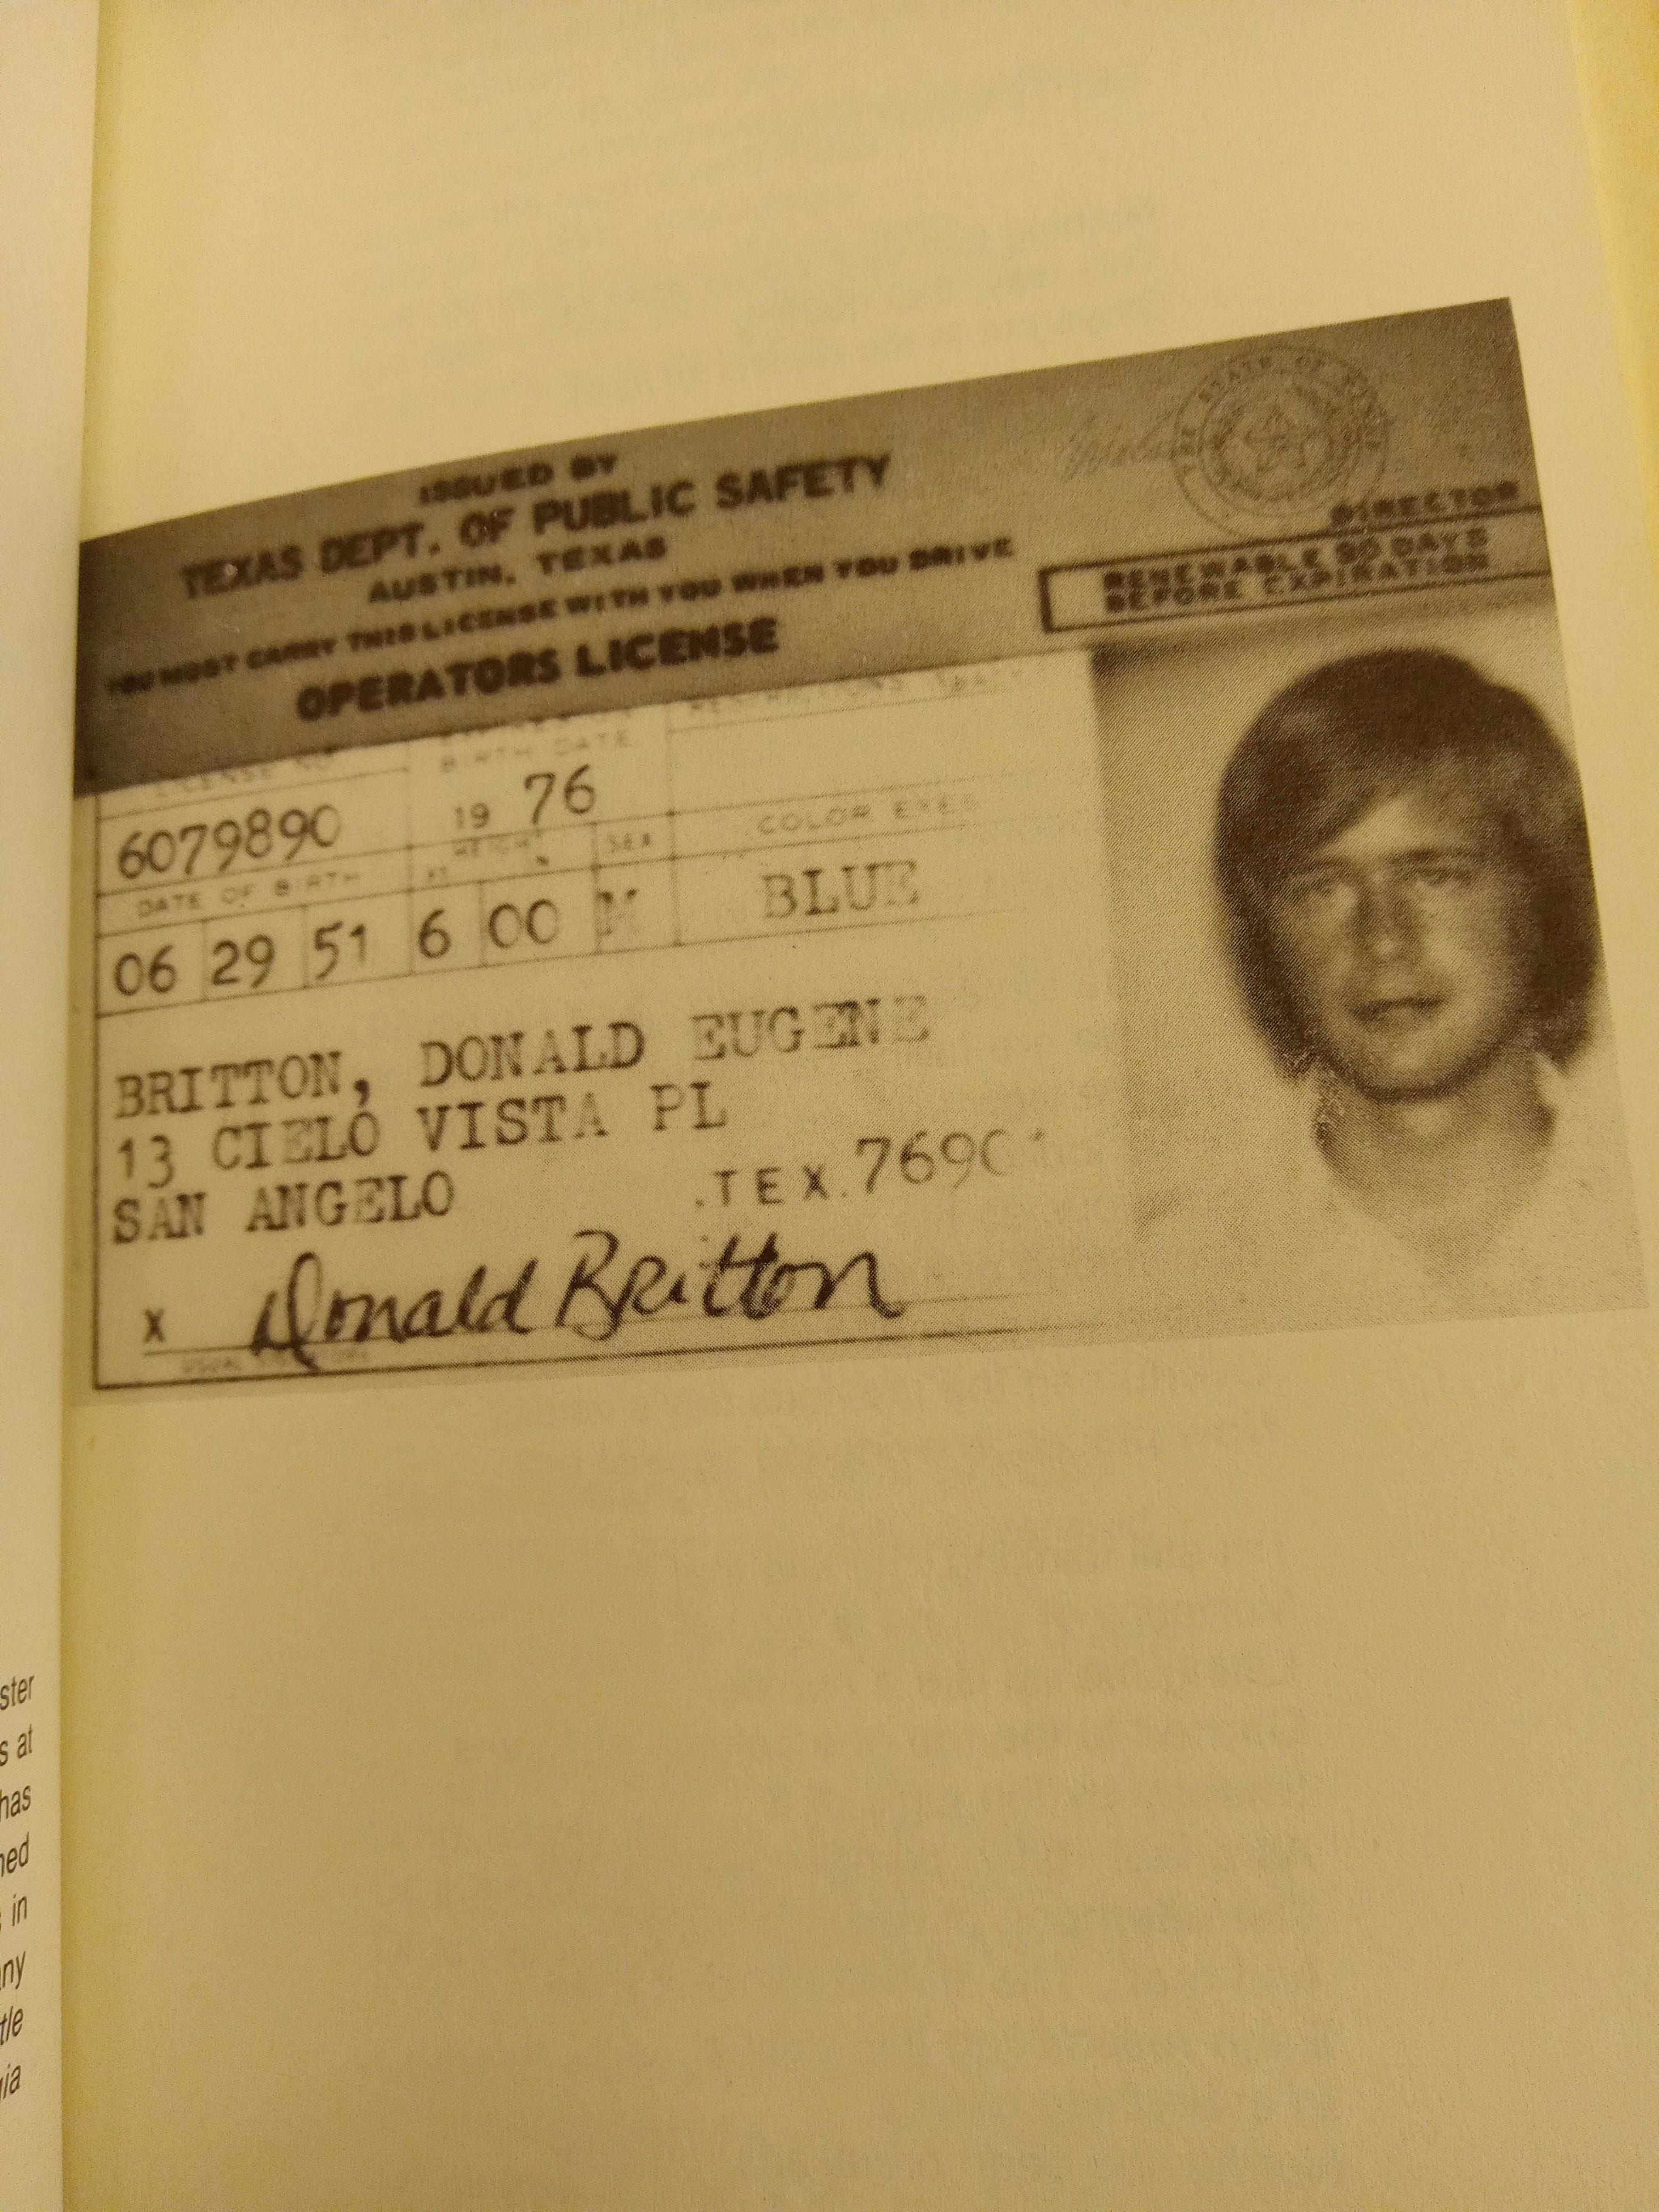 ISSUED BY
TEXAS DEPT. OF PUBLIC SAFETY
AUSTIN, TEXAS
YOU MUST CARRY THIS LICENSE WITH YOU WHEN YOU DRIVE
OPERATORS LICENSE
THE STATE OF TEXAS
DIRECTOR
RENEWABLE 90 DAYS
BEFORE EXPIRATION
LICENSE NO
BIRTH DATE
RESTRICTIONS
6079890
19 76
DATE OF BIRTH
HEIGHT
SEX
COLOR EYES
06 29 51 6 00 M BLUE
BRITTON, DONALD EUGENE
13 CIELO VISTA PL
SAN ANGELO .TEX. 7690
X Donald Britton
USUAL SIGNATURE
ster
s at
has
ned
s in
any
tle
gia